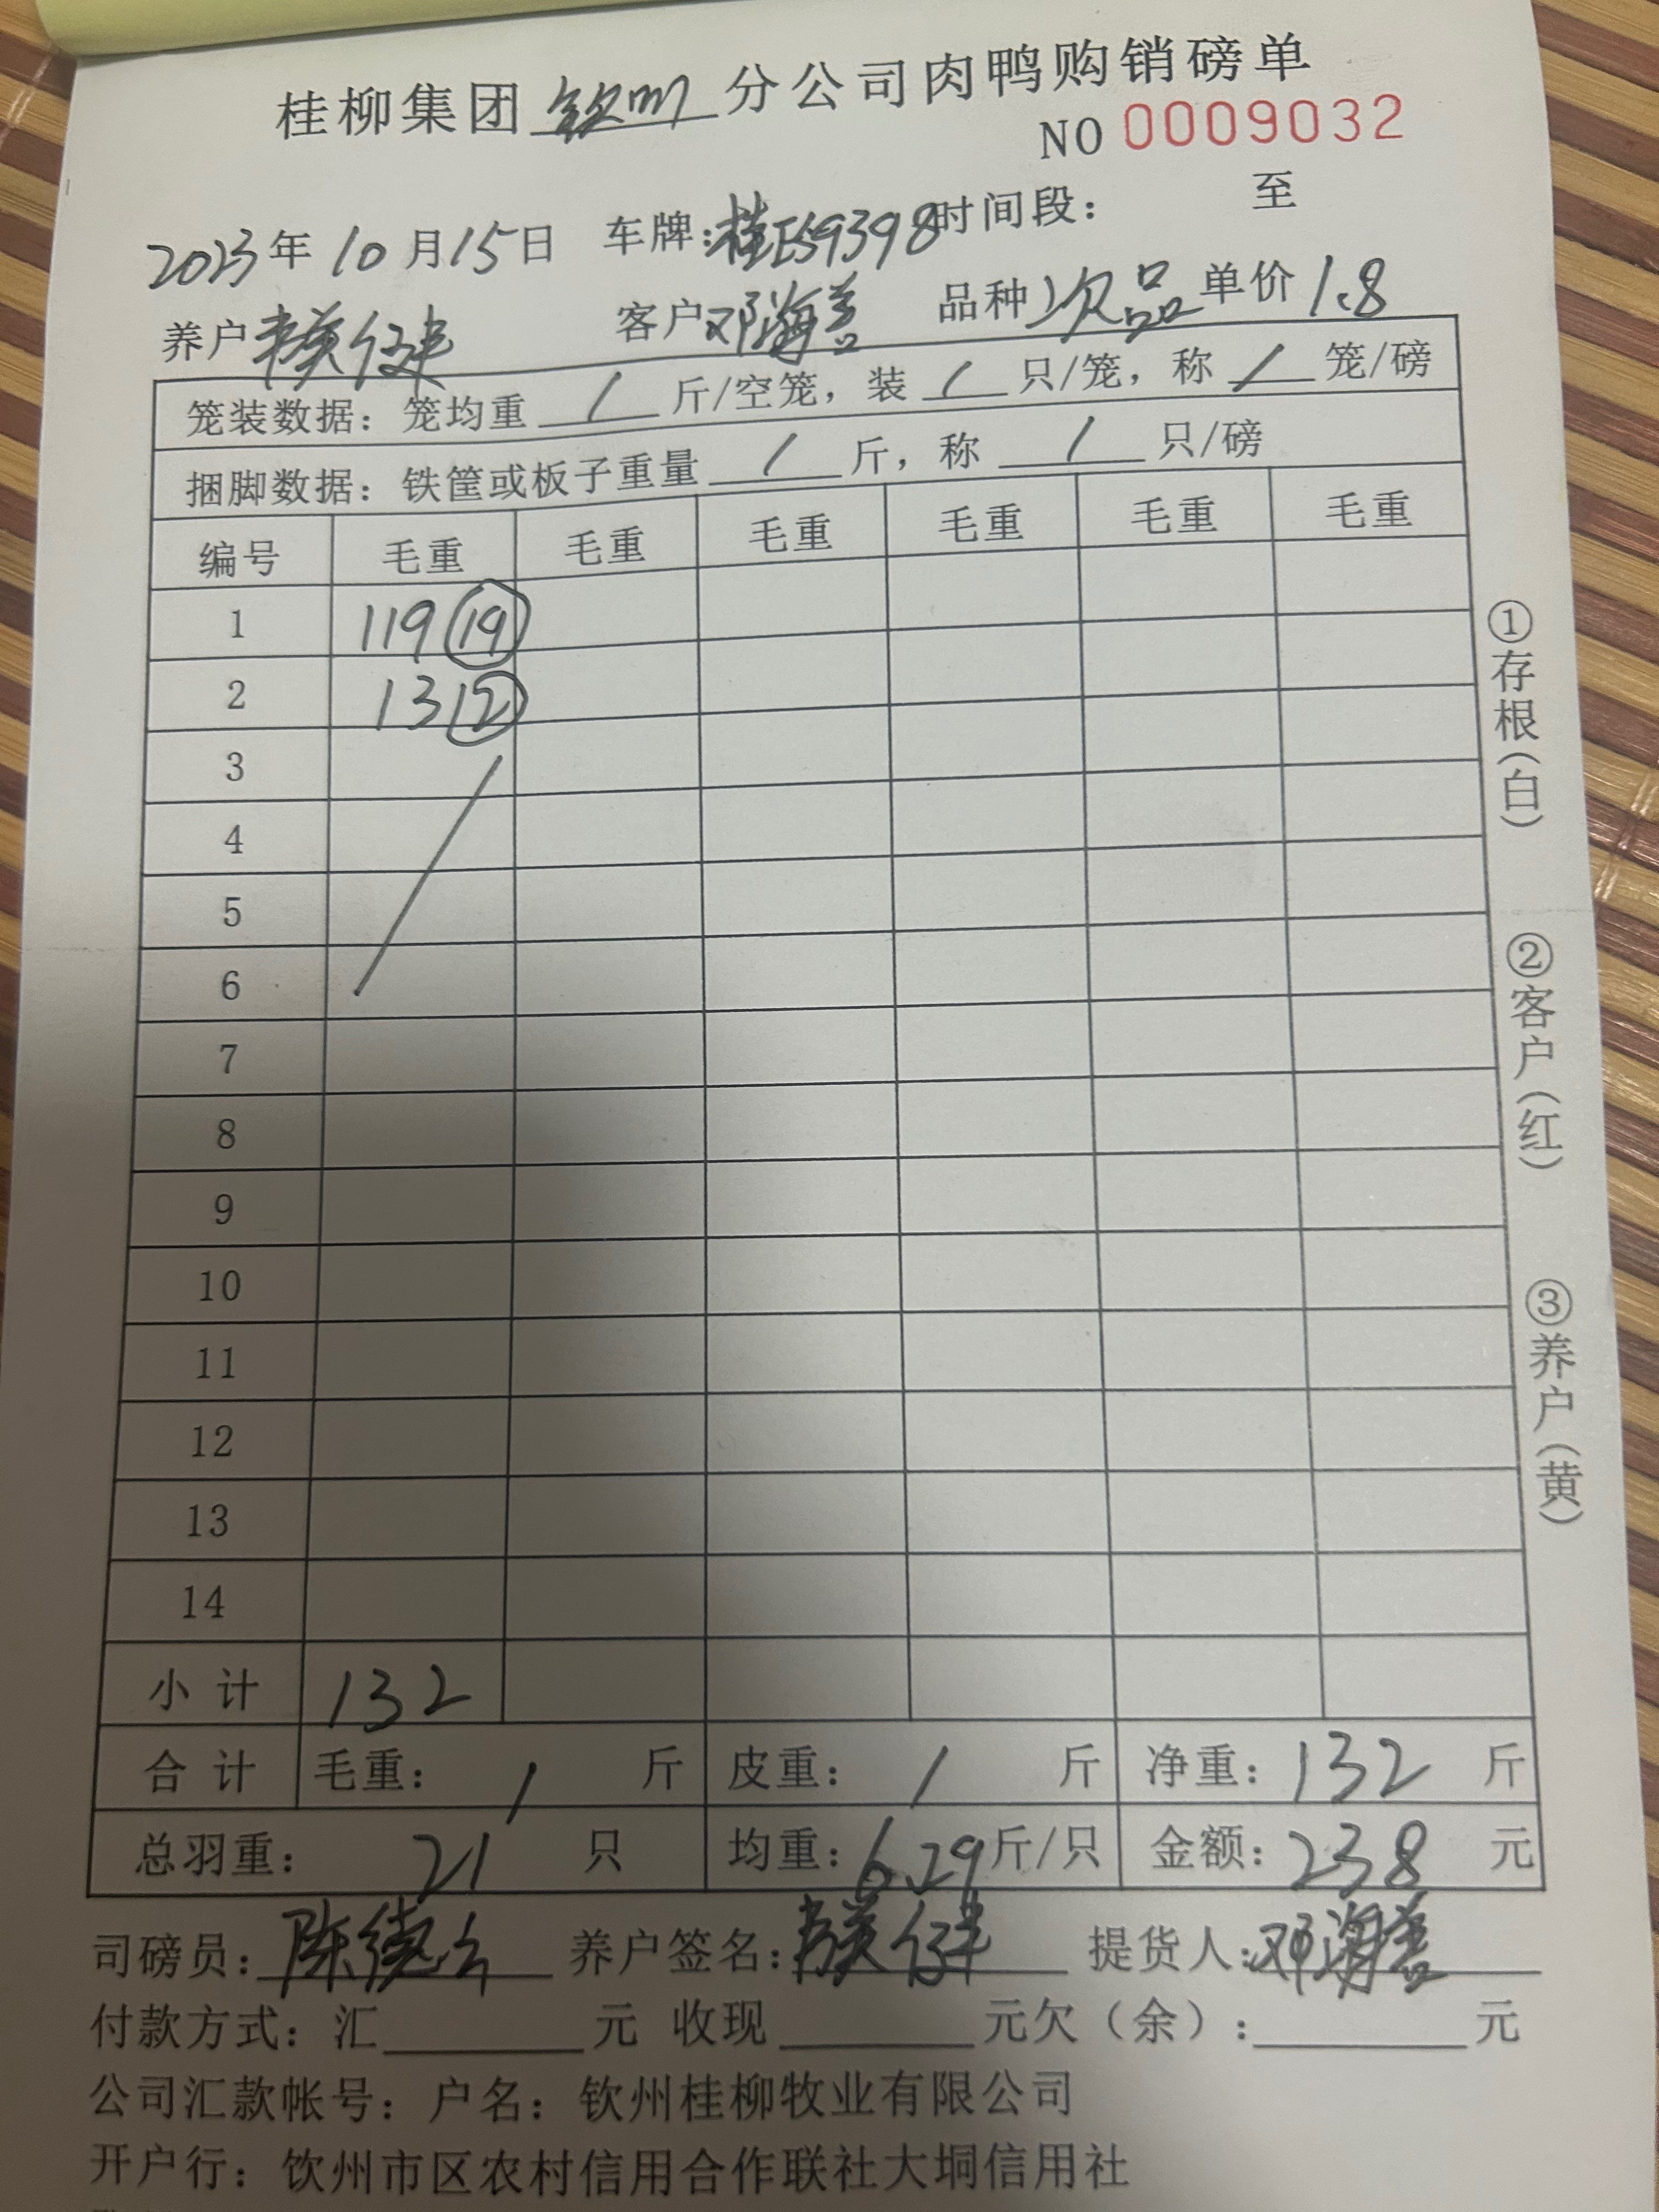 桂柳集团 钦州 分公司肉鸭购销磅单
NO 0009032
2023年10月15日 车牌:桂ES9398 时间段: 至
养户 客户 邓海善 品种 次品 单价 1.8
笼装数据: 笼均重 / 斤/空笼, 装 / 只/笼, 称 / 笼/磅
捆脚数据: 铁筐或板子重量 / 斤, 称 / 只/磅
编号 毛重 毛重 毛重 毛重 毛重 毛重
1 119 19
2 13 2
3
4
5
6
7
8
9
10
11
12
13
14
小计 132
合计 毛重: / 斤 皮重: / 斤 净重: 132 斤
总羽重: 21 只 均重: 6.29 斤/只 金额: 238 元
司磅员: 陈德 养户签名: 提货人: 邓海善
付款方式: 汇 元 收现 元欠(余): 元
公司汇款帐号: 户名: 钦州桂柳牧业有限公司
开户行: 饮州市区农村信用合作联社大垌信用社
①存根(白)
②客户(红)
③养户(黄)